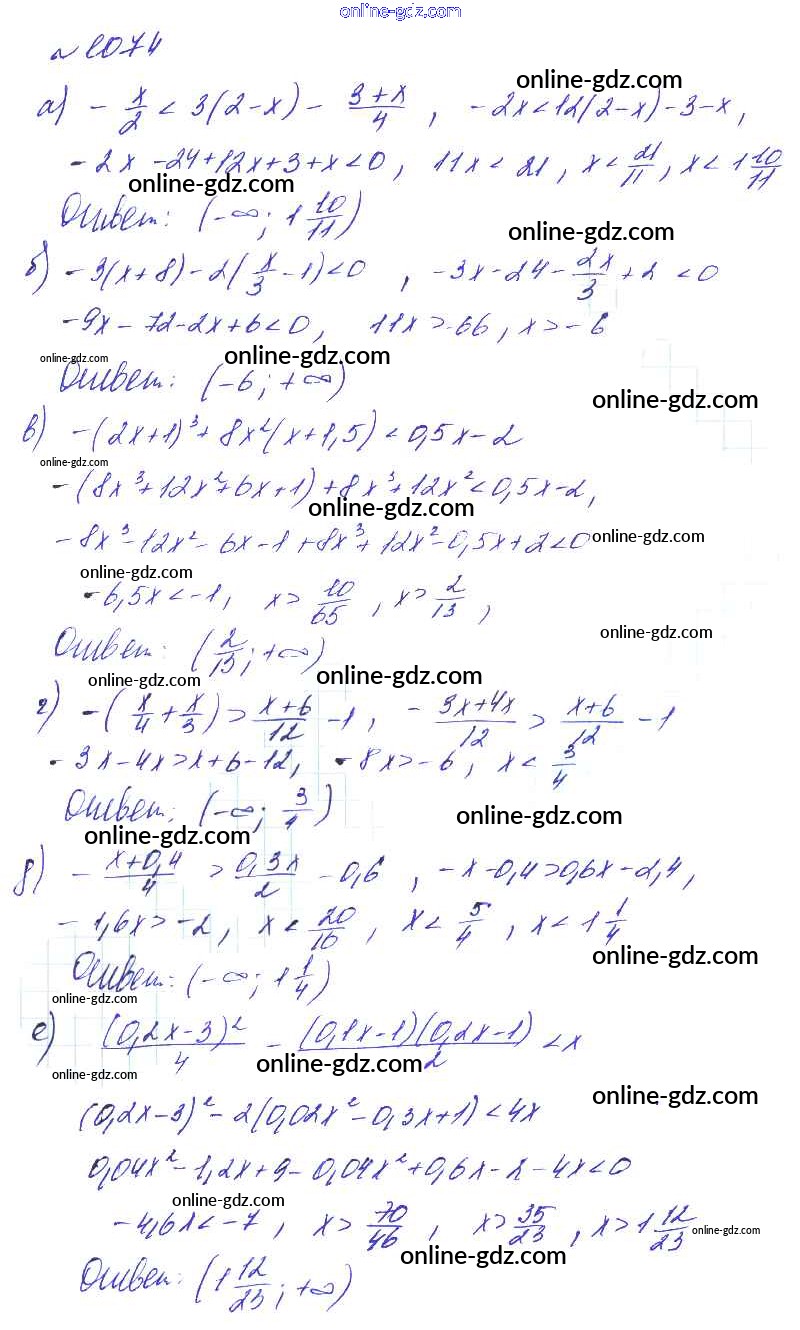 online-gdz.com
№ 1074
online-gdz.com
а) - x/2 < 3(2-x) - (3+x)/4 , -2x<12(2-x)-3-x,
-2x-24+12x+3+x<0, 11x<21, x<21/11, x<1 10/11
online-gdz.com
Ответ: (-∞; 1 10/11)
online-gdz.com
б) -3(x+8)-2(x/3-1)<0 , -3x-24-2x/3+2<0
-9x-72-2x+6<0, 11x>-66, x>-6
online-gdz.com online-gdz.com
Ответ: (-6; +∞)
online-gdz.com
в) -(2x+1)³+8x²(x+1,5)<0,5x-2
online-gdz.com
-(8x³+12x²+6x+1)+8x³+12x²<0,5x-2,
online-gdz.com
-8x³-12x²-6x-1+8x³+12x²-0,5x+2<0
online-gdz.com
online-gdz.com
-6,5x<-1, x>10/65 , x>2/13 ,
online-gdz.com
Ответ: (2/13; +∞)
online-gdz.com online-gdz.com
г) -(x/4+x/3)>(x+6)/12-1, -(3x+4x)/12>(x+6)/12-1
-3x-4x>x+6-12, -8x>-6, x<3/4
Ответ: (-∞; 3/4)
online-gdz.com
online-gdz.com
д) -(x+0,4)/4>0,3x/2-0,6 , -x-0,4>0,6x-2,4,
-1,6x>-2, x<20/16 , x<5/4 , x<1 1/4
online-gdz.com
Ответ: (-∞; 1 1/4)
online-gdz.com
е) (0,2x-3)²/4-(0,1x-1)(0,2x-1)/2<x
online-gdz.com online-gdz.com
online-gdz.com
(0,2x-3)²-2(0,02x²-0,3x+1)<4x
0,04x²-1,2x+9-0,04x²+0,6x-2-4x<0
online-gdz.com
-4,6x<-7, x>70/46 , x>35/23 , x>1 12/23
online-gdz.com
online-gdz.com
Ответ: (1 12/23; +∞)